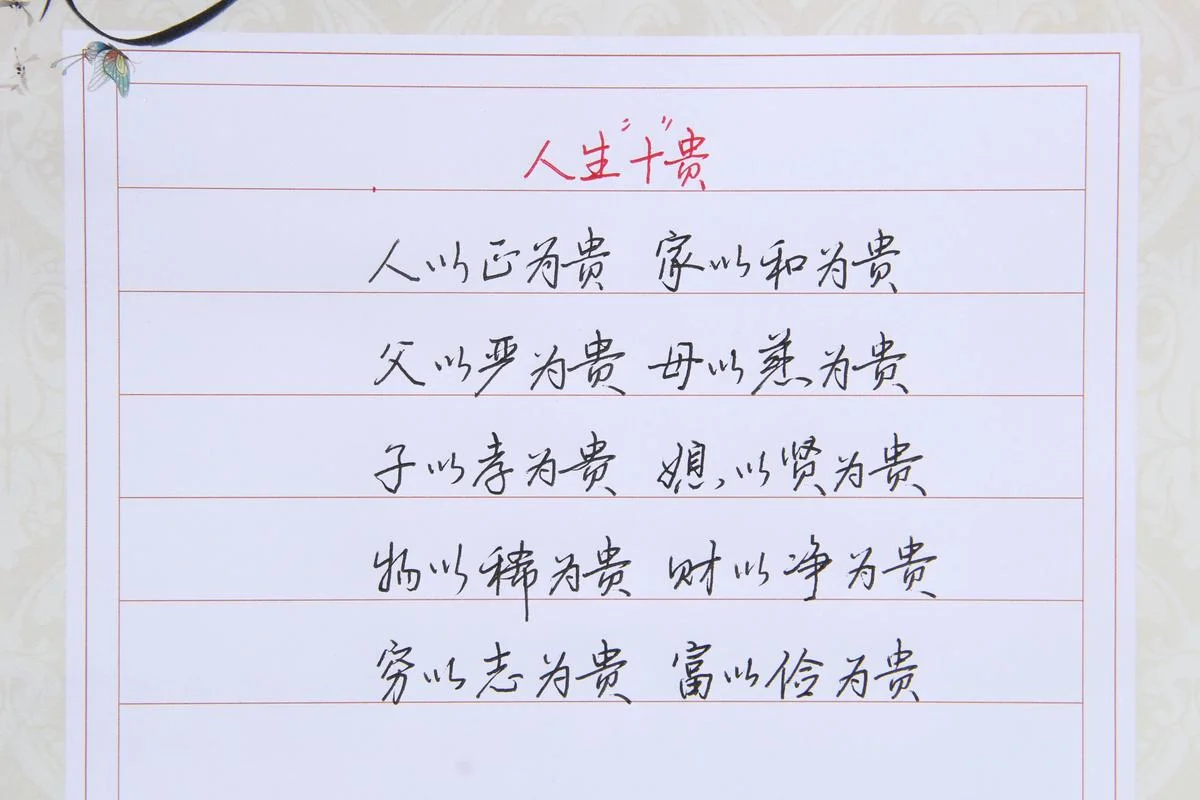 人生"十"贵
人以正为贵 家以和为贵
父以严为贵 母以慈为贵
子以孝为贵 媳以贤为贵
物以稀为贵 财以净为贵
穷以志为贵 富以俭为贵